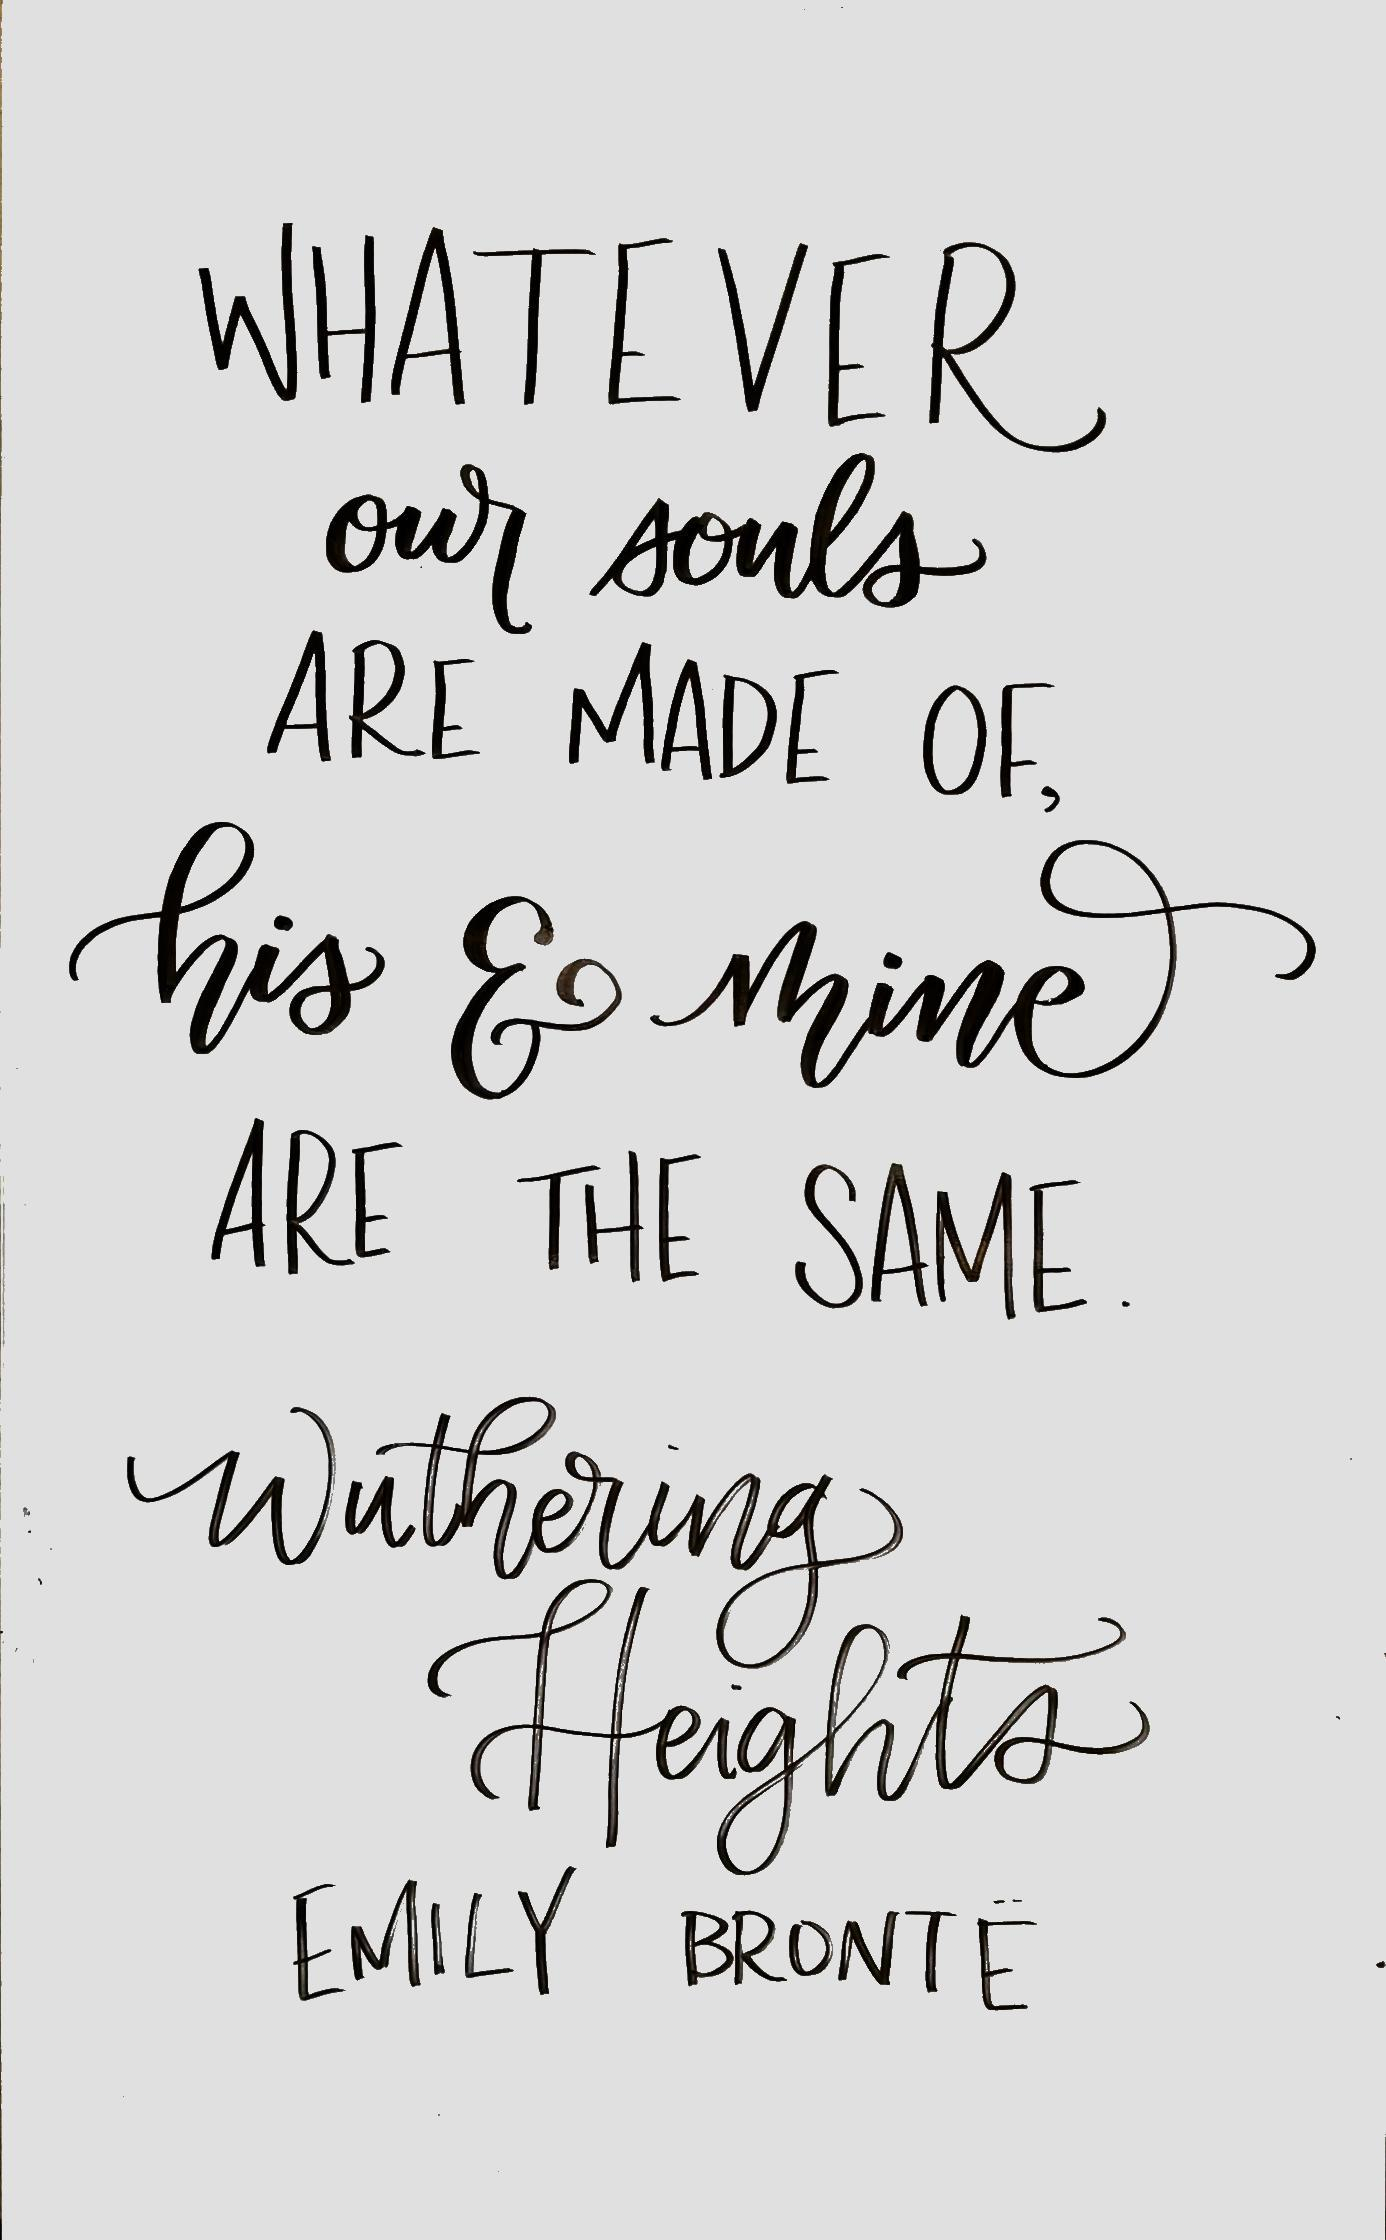 WHATEVER
our souls
ARE MADE OF,
his & mine
ARE THE SAME.
Wuthering
Heights
EMILY BRONTË